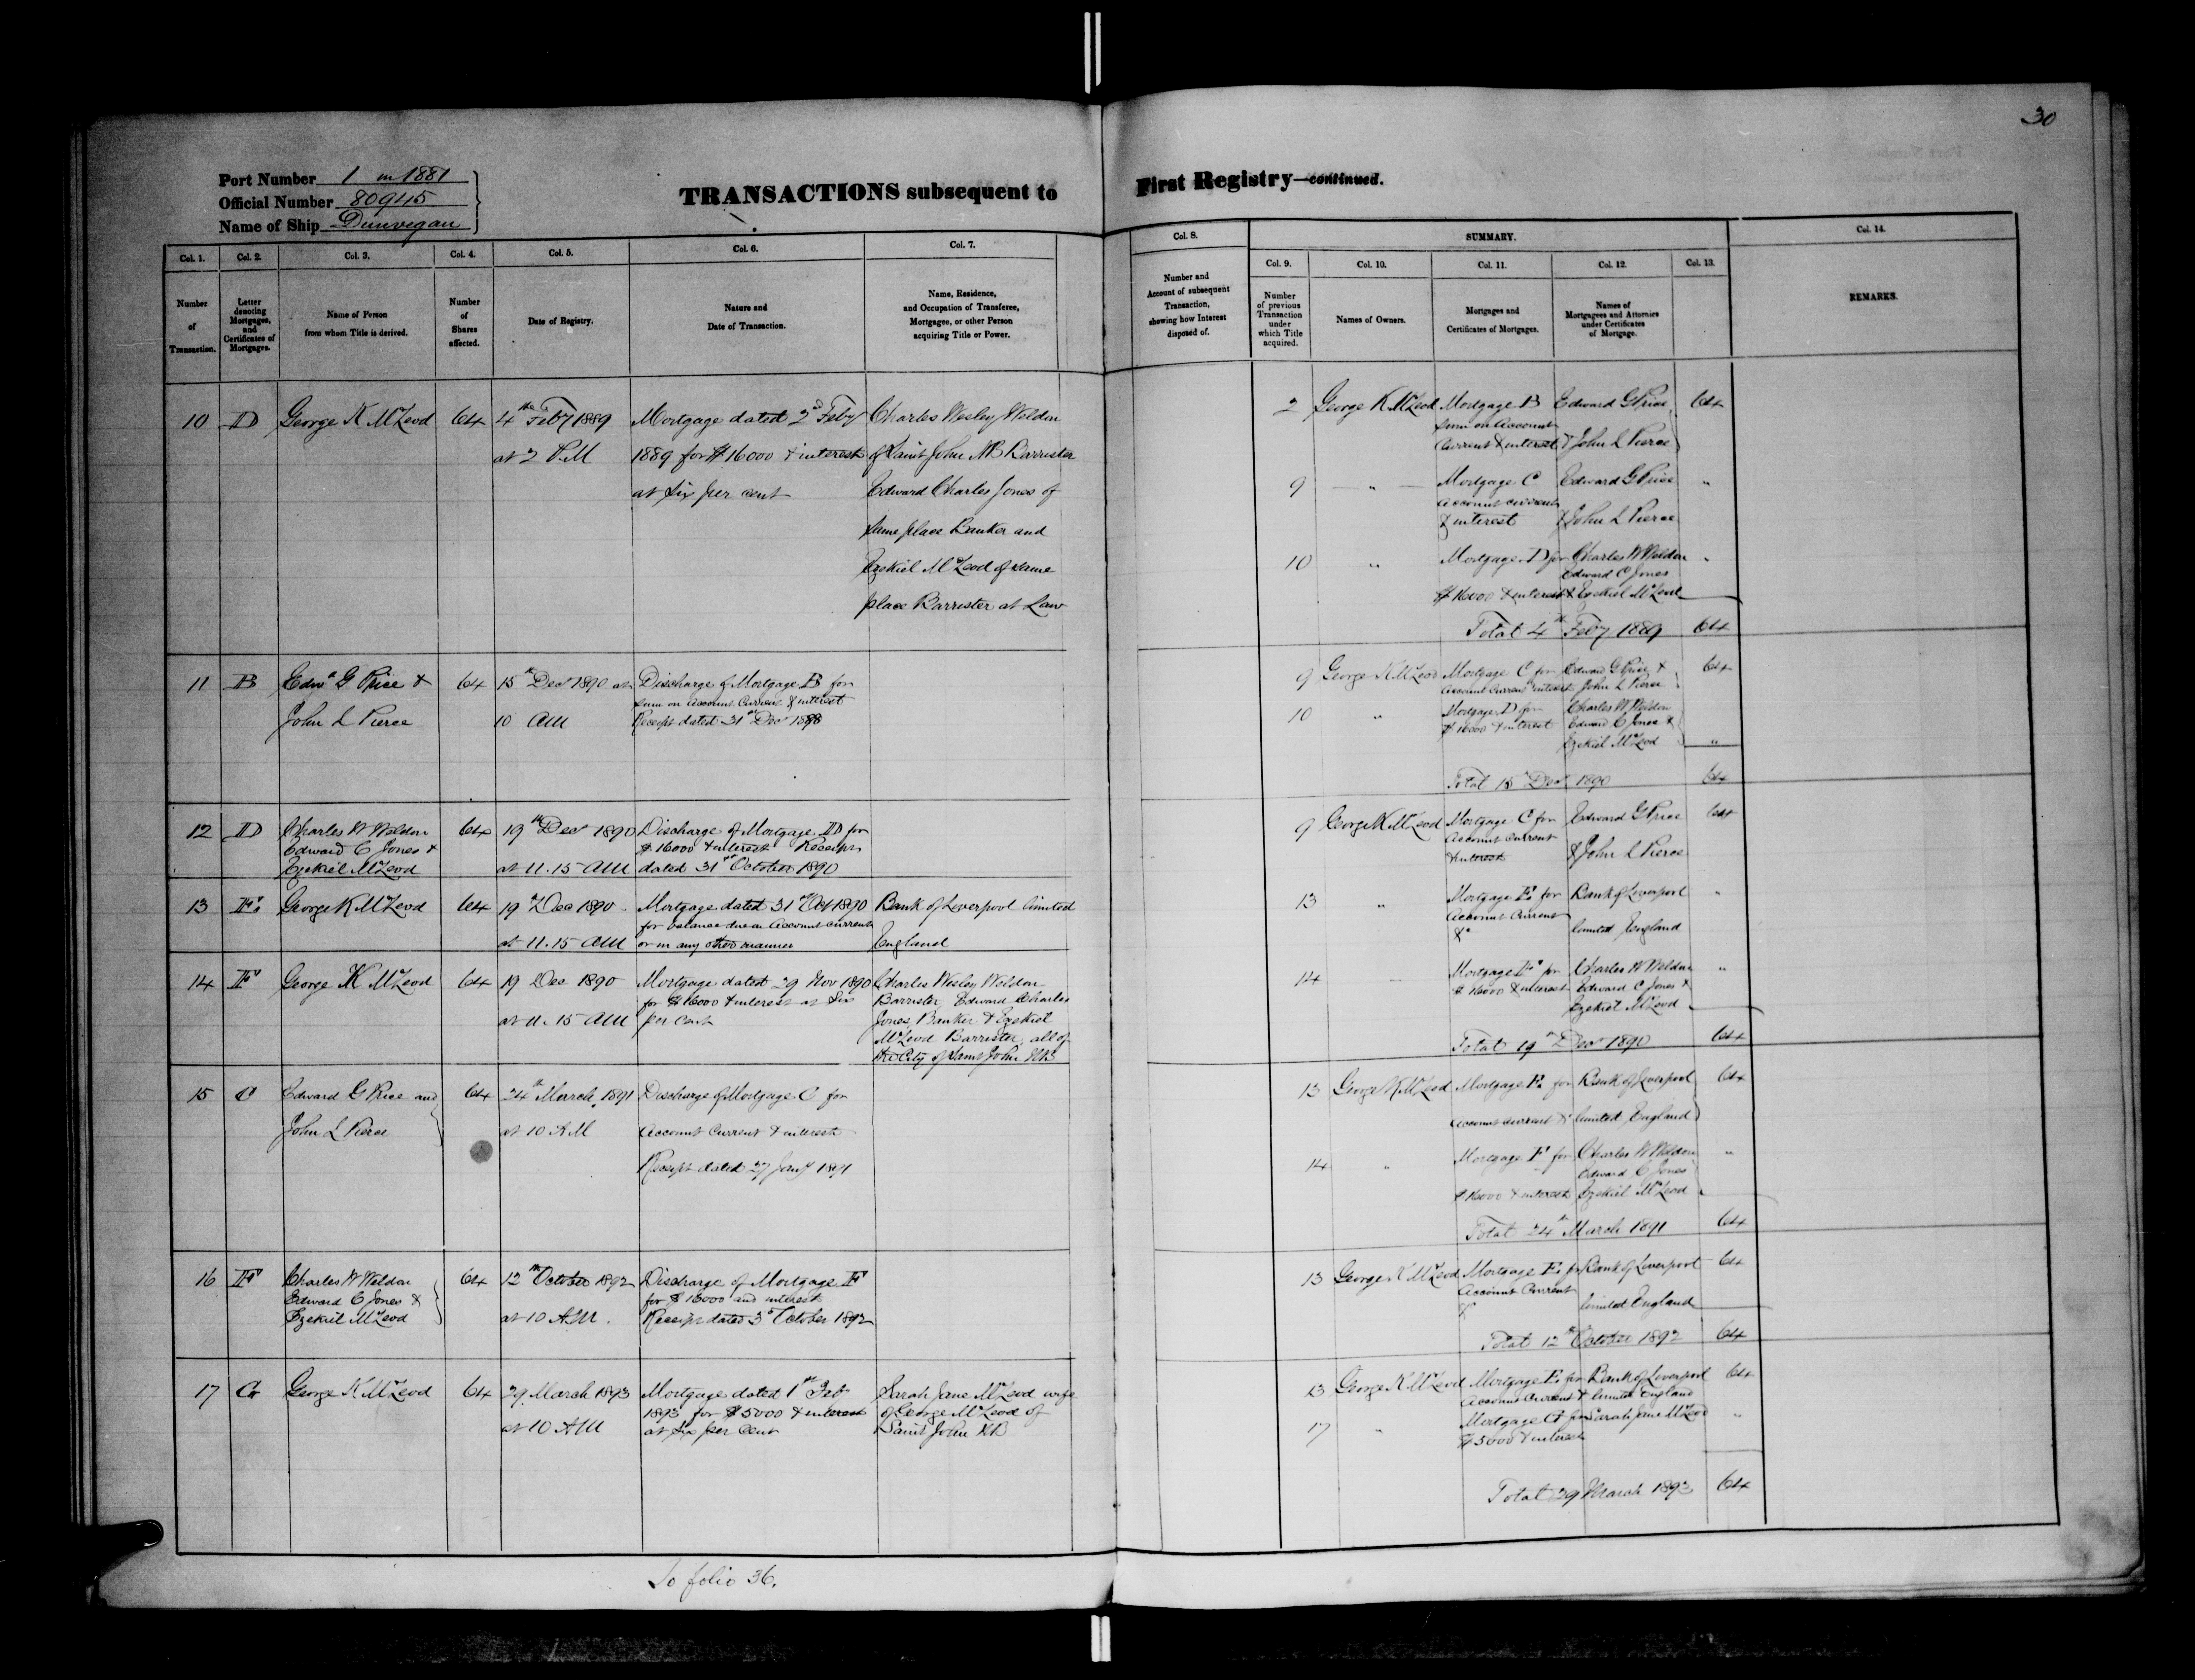 30
Port Number 1 in 1881
Official Number 80945
Name of Ship Dunvegan
TRANSACTIONS subsequent to First Registry—continued.
Col. 1. Col. 2. Col. 3. Col. 4. Col. 5. Col. 6. Col. 7.
Number of Transaction.
Letter denoting Mortgages, and Certificates of Mortgages.
Name of Person from whom Title is derived.
Number of Shares affected.
Date of Registry.
Nature and Date of Transaction.
Name, Residence, and Occupation of Transferee, Mortgagee, or other Person acquiring Title or Power.
10 D George K McLeod 64 4th Feby 1889 Mortgage dated 2d Feby Charles Wesley Weldon
at 2 PM 1889 for $16000 & interest of Saint John NB Barrister
at six per cent Edward Charles Jones of
same place Banker and
Ezekiel McLeod of same
place Barrister at Law
11 B Edwd G Price & 64 15th Decr 1890 at Discharge of Mortgage B for
sum on Account Current & interest
John L Pierce 10 AM Receipt dated 31st Decr
12 D Charles W Weldon 64 19th Decr 1890 Discharge of Mortgage D for
Edward C Jones & $16000 & interest Receipt
Ezekiel McLeod at 11.15 AM dated 31st October 1890
13 E. George K McLeod 64 19th Dec 1890 Mortgage dated 31st Oct 1890 Bank of Liverpool limited
for balance due on Account current
at 11.15 AM or in any other manner England
14 F George K McLeod 64 19 Dec 1890 Mortgage dated 29 Nov 1890 Charles Wesley Weldon
for $16000 & interest at Six Barrister, Edward Charles
at 11.15 AM per cent Jones, Banker & Ezekiel
McLeod Barrister, all of
the City of Saint John NB
15 C Edward G Price and 64 24th March 1891 Discharge of Mortgage C for
John L Pierce at 10 AM Account Current & interest
Receipt dated 27 Jany 1891
16 F Charles W Weldon 64 12th October 1892 Discharge of Mortgage F
Edward C Jones & for $16000 and interest
Ezekiel McLeod at 10 AM. Receipt dated 3d October 1892
17 G George K McLeod 64 29 March 1893 Mortgage dated 1st Feb Sarah Jane McLeod wife
1893 for $5000 & interest of George McLeod of
at 10 AM at six per cent Saint John NB
To folio 36.
Col. 8. SUMMARY. Col. 14.
Col. 9. Col. 10. Col. 11. Col. 12. Col. 13.
Number and Account of subsequent Transaction, shewing how Interest disposed of.
Number of previous Transaction under which Title acquired.
Names of Owners.
Mortgages and Certificates of Mortgages.
Names of Mortgagees and Attornies under Certificates of Mortgage.
REMARKS.
2 George K McLeod Mortgage B Edward G Price 64
sum on Account
Current & interest & John L Pierce
9 " Mortgage C Edward G Price "
Account current
& interest & John L Pierce
10 " Mortgage D for Charles W Weldon "
Edward C Jones
$16000 & interest & Ezekiel McLeod
Total 4th Feby 1889 64
9 George K McLeod Mortgage C for Edward G Price & 64
Account Current interest John L Pierce
10 " Mortgage D for Charles W Weldon
$16000 & interest Edward C Jones &
Ezekiel McLeod "
Total 15th Decr 1890 64
9 George K McLeod Mortgage C for Edward G Price 64
Account current
& interest & John L Pierce
13 " Mortgage E. for Bank of Liverpool "
Account Current
&c limited England
14 Mortgage F for Charles W Weldon "
$16000 & interest Edward C Jones &
Ezekiel McLeod
Total 19th Decr 1890 64
13 George K McLeod Mortgage E. for Bank of Liverpool 64
Account current & limited England
14 " Mortgage F for Charles W Weldon "
Edward C Jones
$16000 & interest Ezekiel McLeod
Total 24th March 1891 64
13 George K McLeod Mortgage E. for Bank of Liverpool 64
Account Current
& limited England
Total 12th October 1892 64
13 George K McLeod Mortgage E. for Bank of Liverpool 64
Account Current & limited England
17 " Mortgage G for Sarah Jane McLeod "
$5000 & interest
Total 29 March 1893 64